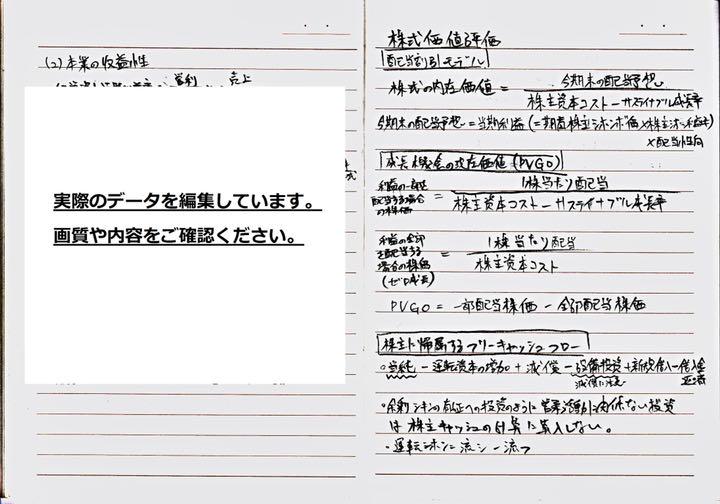 (2) 本業の収益性
営利 売上
実際のデータを編集しています。
画質や内容をご確認ください。
株式価値評価
配当割引モデル
株式の内在価値 = 今期末の配当予想 / 株主資本コスト-サステイナブル成長率
今期末の配当予想 = 当期利益 (=期首株主シホンボ価×株主シホン利益率)
×配当性向
成長機会の現在価値 (PVGO)
利益の一部配当する場合の株価 = 1株当たり配当 / 株主資本コスト-サステイナブル成長率
利益の全部を配当する場合の株価 (ゼロ成長) = 1株当たり配当 / 株主資本コスト
PVGO = 一部配当株価 - 全部配当株価
株主に帰属するフリーキャッシュフロー
・当純 - 運転資本の増加 + 減償 - 設備投資 + 新規借入 - 借入金
減償に注意
・余剰シキンの有証への投資のように営業活動に関係ない投資
は株主キャッシュの計算に算入しない。
・運転シホン = 流シ - 流フ